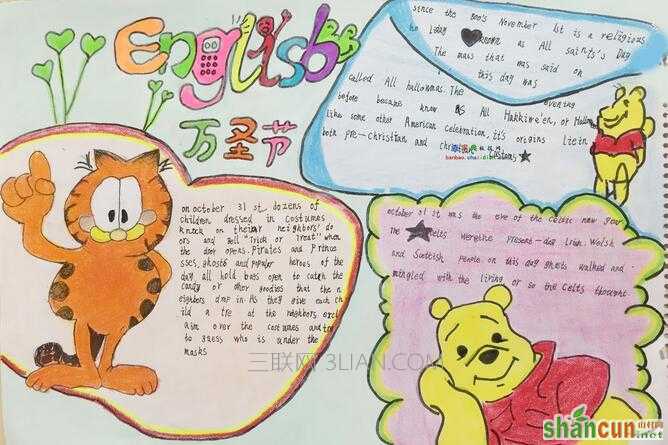 English
万圣节
since the 800's November 1st is a religious
holiday known as All saints's Day
The mass that was said on
this day was
called All hallowmas. The evening
before became know as All Hakkiwe'en, or Hallow
like some other American celebration, it's origins lie in
both pre-christian and chris tians
banbao.chazidian.com
on october 31 st dozens of
children dressed in costumes
knock on their neighbors' do
ors and yell "Trick or Treat" when
the door opens. Pirates and prince
sses, ghosts and popular heroes of the
day all hold bags open to catch the
candy or other goodies that the n
eighbors drop in. As they give each ch
ild a tre at the neighbors excl
aim over the costumes and try
to guess who is under the
masks
october 31 st was the eve of the Celtic new year
The Celts were the present-day Irish, Welsh
and Scottish people on this day ghosts walked and
mingled with the living or so the Celts thought
三联网 3LIAN.COM
shancun 山村网
.net